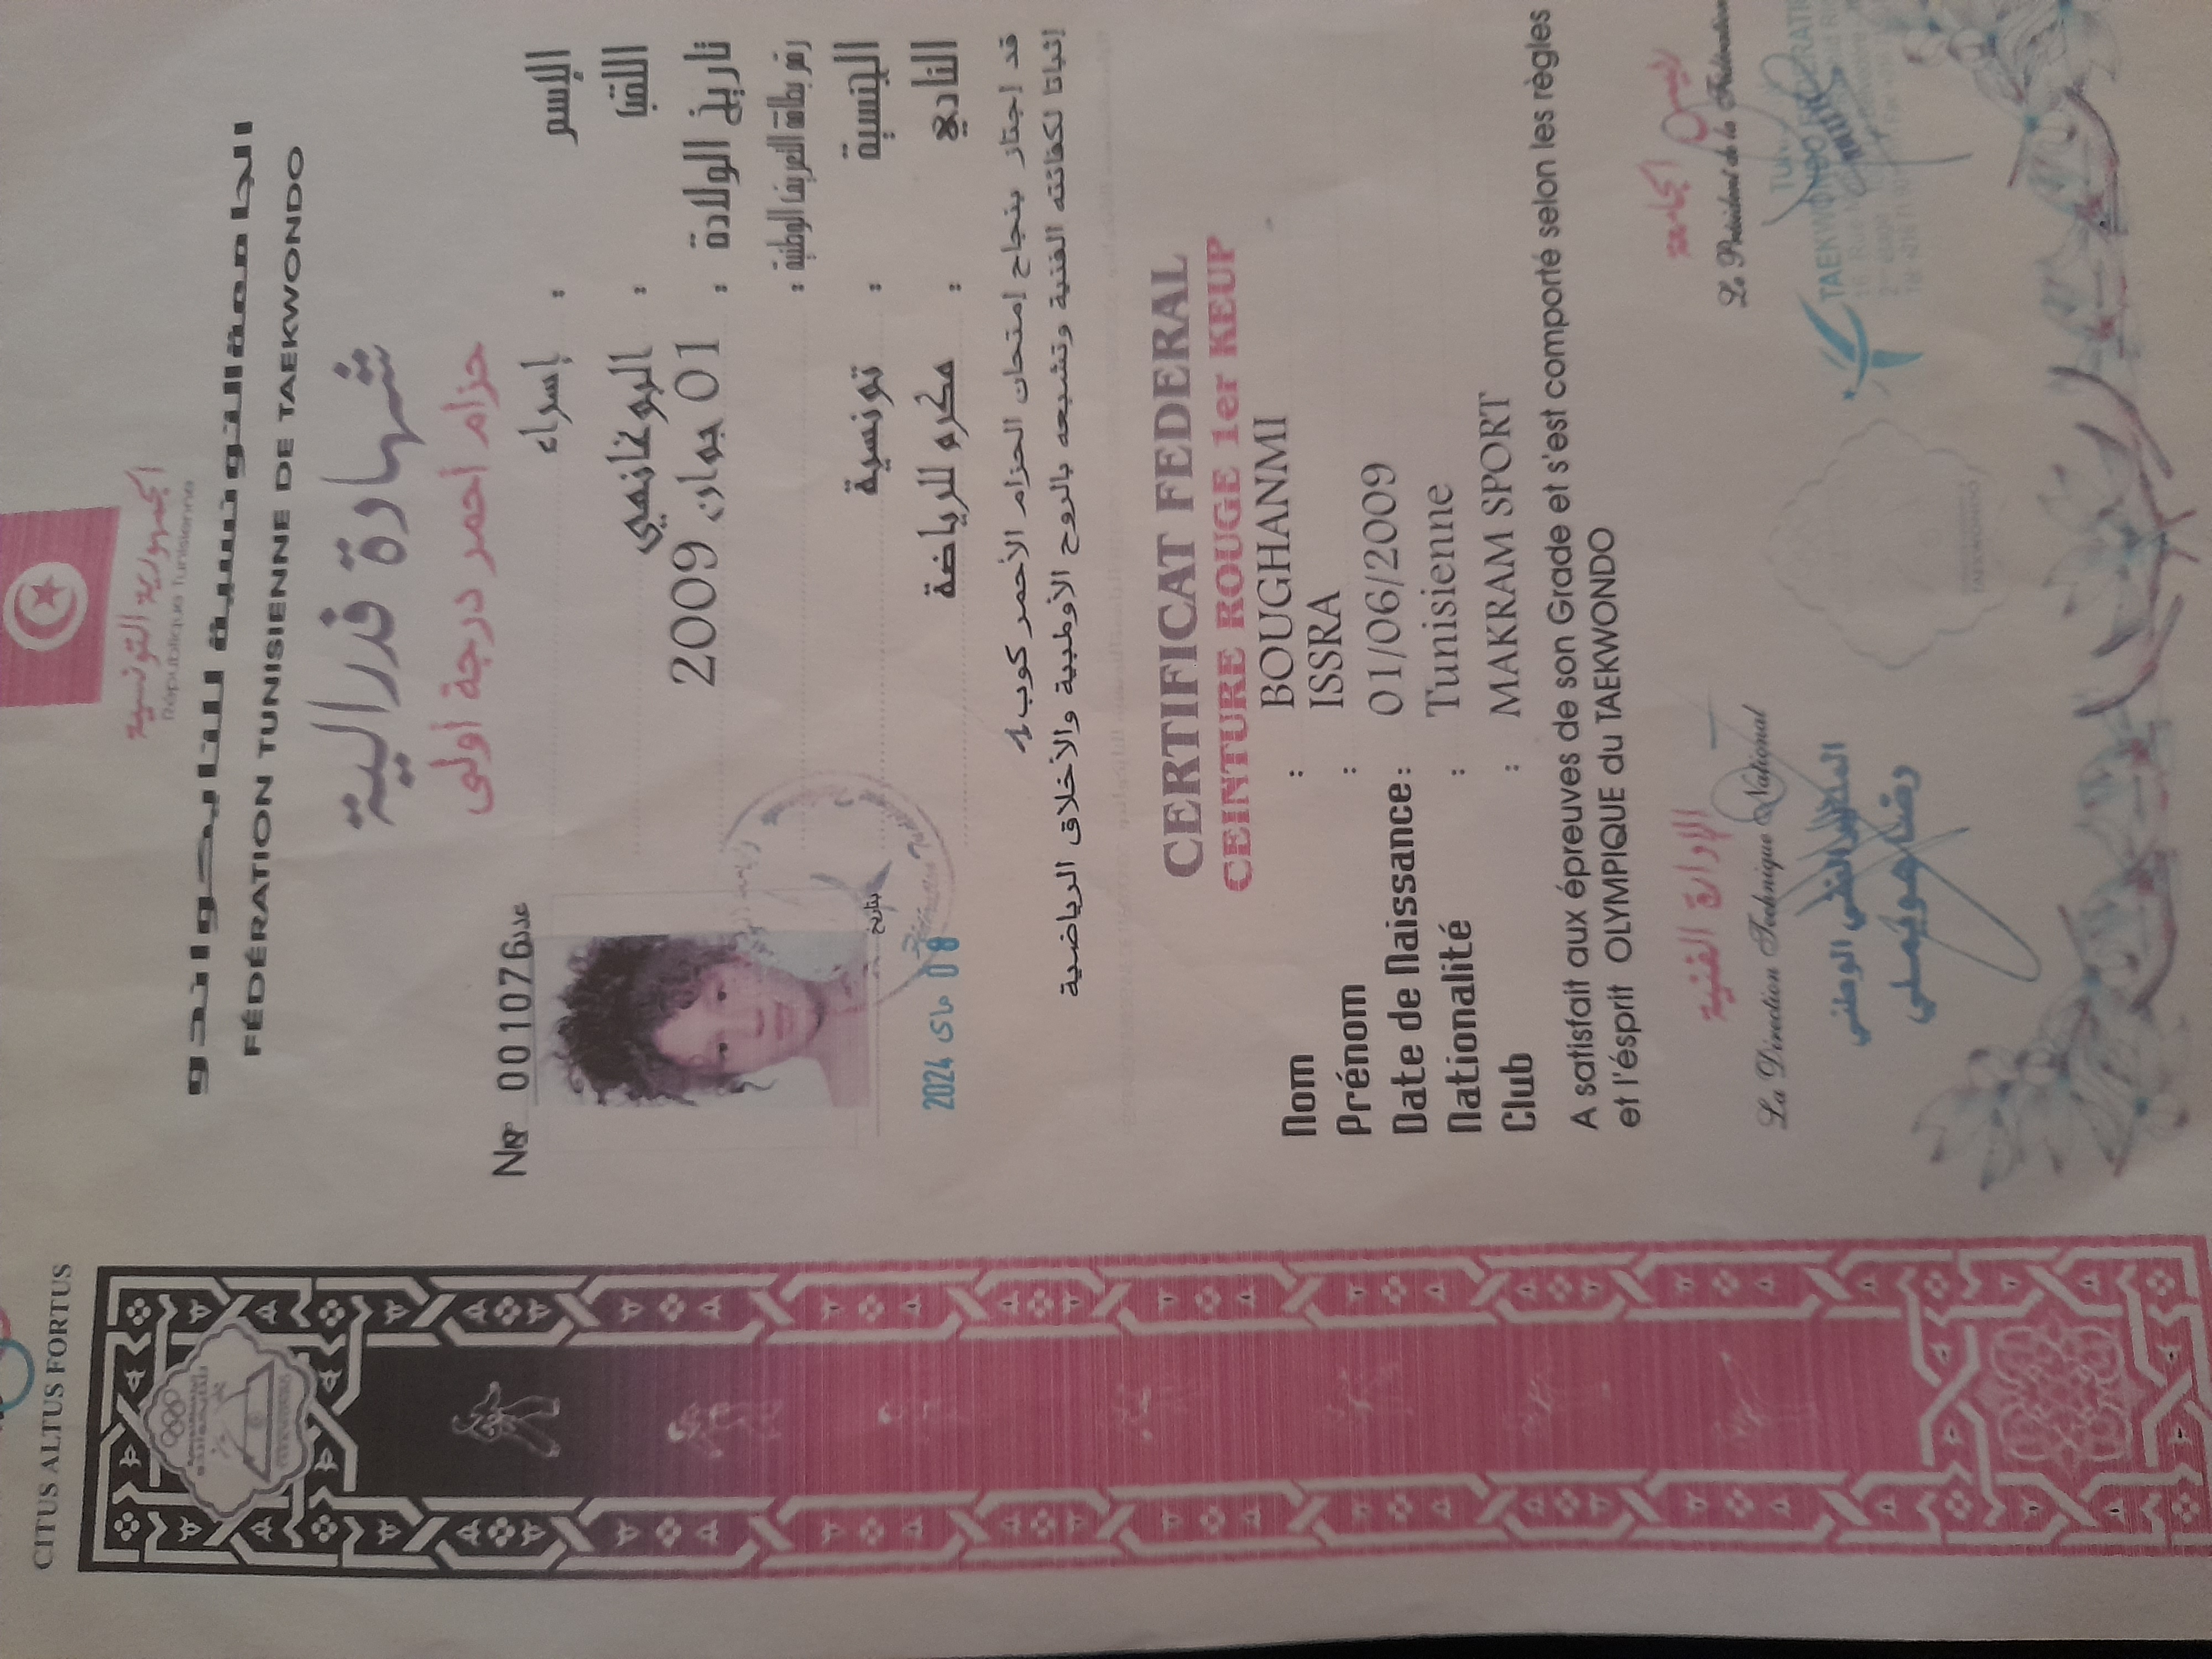 CITUS ALTUS FORTUS
الجمهورية التونسية
République Tunisienne
الجامعة التونسية للتايكواندو
FÉDÉRATION TUNISIENNE DE TAEKWONDO
شهادة فدرالية
حزام أحمر درجة أولى
Nº 001076 عدد
الإسم : إسراء
اللقب : البوغانمي
تاريخ الولادة : 01 جوان 2009
رقم بطاقة التعريف الوطنية :
الجنسية : تونسية
النادي : مكرم للرياضة
بتاريخ
08 ماي 2024
قد إجتاز بنجاح إمتحان الحزام الأحمر كوب 1
إثباتا لكفائته الفنية وتشبعه بالروح الأولمبية والأخلاق الرياضية
CERTIFICAT FEDERAL
CEINTURE ROUGE 1er KEUP
Nom : BOUGHANMI
Prénom : ISSRA
Date de Naissance : 01/06/2009
Nationalité : Tunisienne
Club : MAKRAM SPORT
A satisfait aux épreuves de son Grade et s'est comporté selon les règles
et l'ésprit OLYMPIQUE du TAEKWONDO
الإدارة الفنية
La Direction Technique National
رئيس الجامعة
Le Président de la Fédération
المدير الفني الوطني
TAEKWONDO